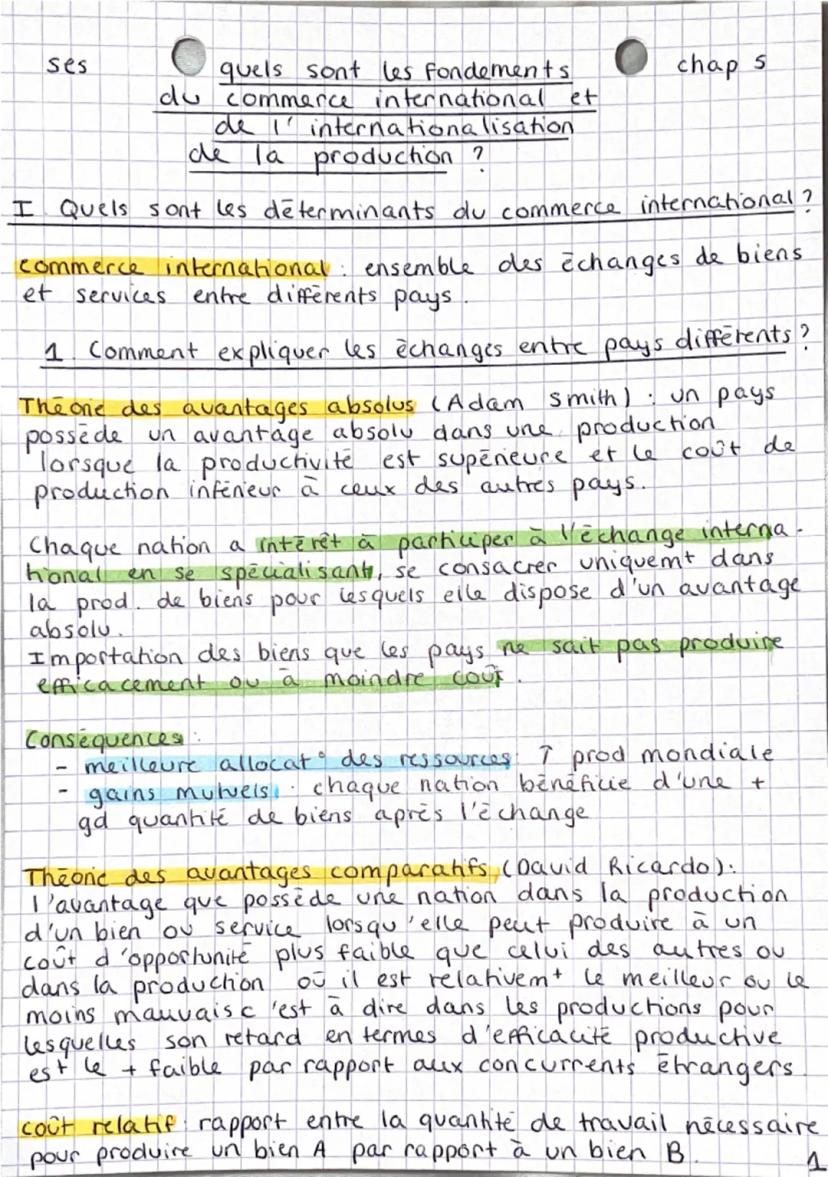 ses
chap 5
quels sont les fondements
du commerce international et
de l'internationalisation
de la production ?
I Quels sont les déterminants du commerce international ?
commerce international : ensemble des échanges de biens
et services entre différents pays.
1. Comment expliquer les échanges entre pays différents ?
Théorie des avantages absolus (Adam Smith) : un pays
possède un avantage absolu dans une production
lorsque la productivité est supérieure et le coût de
production inférieur à ceux des autres pays.
Chaque nation a intérêt à participer à l'échange interna-
tional en se spécialisant, se consacrer uniquemt dans
la prod. de biens pour lesquels elle dispose d'un avantage
absolu.
Importation des biens que les pays ne sait pas produire
efficacement ou à moindre coût.
Conséquences :
- meilleure allocat° des ressources : ↑ prod mondiale
- gains mutuels : chaque nation bénéficie d'une +
gd quantité de biens après l'échange
Théorie des avantages comparatifs (David Ricardo) :
l'avantage que possède une nation dans la production
d'un bien ou service lorsqu'elle peut produire à un
coût d'opportunité plus faible que celui des autres ou
dans la production où il est relativemt le meilleur ou le
moins mauvais c'est à dire dans les productions pour
lesquelles son retard en termes d'efficacité productive
est le + faible par rapport aux concurrents étrangers
coût relatif : rapport entre la quantité de travail nécessaire
pour produire un bien A par rapport à un bien B.
1